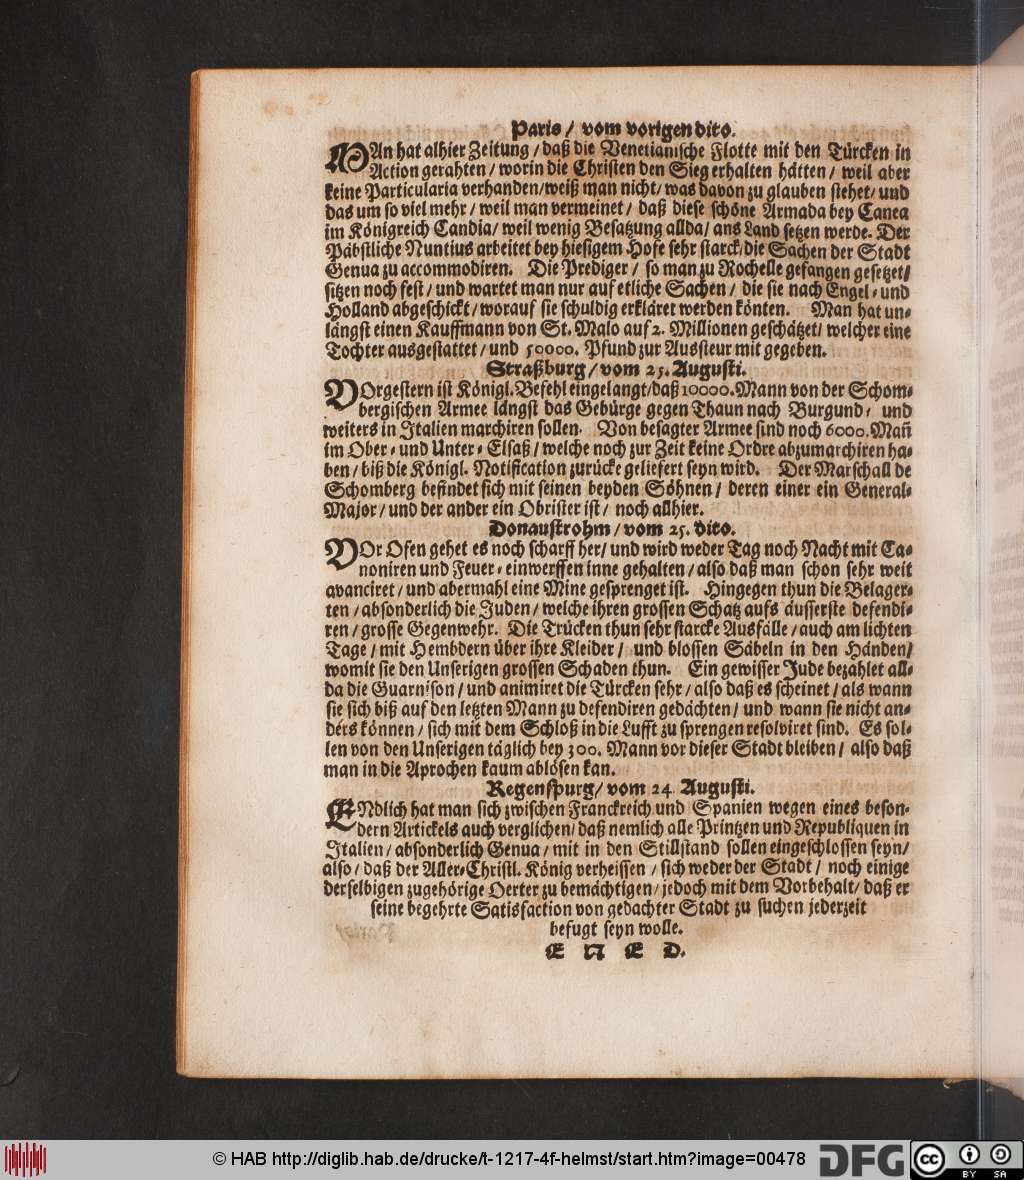 Paris / vom vorigen dito.
MAn hat alhier Zeitung / daß die Venetianische Flotte mit den Türcken in
Action gerahten / worin die Christen den Sieg erhalten hätten / weil aber
keine Particularia verhanden/weiß man nicht/ was davon zu glauben stehet/ und
das um so viel mehr / weil man vermeinet / daß diese schöne Armada bey Canea
im Königreich Candia/ weil wenig Besatzung allda/ ans Land setzen werde. Der
Päbstliche Nuntius arbeitet bey hiesigem Hofe sehr starck/die Sachen der Stadt
Genua zu accommodiren. Die Prediger / so man zu Rochelle gefangen gesetzet/
sitzen noch fest / und wartet man nur auf etliche Sachen / die sie nach Engel- und
Holland abgeschickt/ worauf sie schuldig erkläret werden könten. Man hat un-
längst einen Kauffmann von St. Malo auf 2. Millionen geschätzet/ welcher eine
Tochter ausgestattet / und 50000. Pfund zur Aussteur mit gegeben.
Straßburg / vom 25. Augusti.
VOrgestern ist Königl. Befehl eingelangt/daß 10000. Mann von der Schom-
bergischen Armee längst das Gebürge gegen Thaun nach Burgund, und
weiters in Italien marchiren sollen. Von besagter Armee sind noch 6000. Mañ
im Ober- und Unter-Elsaß / welche noch zur Zeit keine Ordre abzumarchiren ha-
ben / biß die Königl. Notification zurücke geliefert seyn wird. Der Marschall de
Schomberg befindet sich mit seinen beyden Söhnen / deren einer ein General-
Major / und der ander ein Obrister ist / noch allhier.
Donaustrohm / vom 25. dito.
VOr Ofen gehet es noch scharff her/ und wird weder Tag noch Nacht mit Ca-
noniren und Feuer-einwerffen inne gehalten / also daß man schon sehr weit
avanciret / und abermahl eine Mine gesprenget ist. Hingegen thun die Belager-
ten / absonderlich die Juden / welche ihren grossen Schatz aufs äusserste defendi-
ren / grosse Gegenwehr. Die Trücken thun sehr starcke Ausfälle / auch am lichten
Tage / mit Hembdern über ihre Kleider / und blossen Säbeln in den Händen/
womit sie den Unserigen grossen Schaden thun. Ein gewisser Jude bezahlet all-
da die Guarnison / und animiret die Türcken sehr / also daß es scheinet / als wann
sie sich biß auf den letzten Mann zu defendiren gedächten / und wann sie nicht an-
ders können / sich mit dem Schloß in die Lufft zu sprengen resolviret sind. Es sol-
len von den Unserigen täglich bey 300. Mann vor dieser Stadt bleiben / also daß
man in die Aprochen kaum ablösen kan.
Regenspurg / vom 24 Augusti.
ENdlich hat man sich zwischen Franckreich und Spanien wegen eines beson-
dern Artickels auch verglichen/ daß nemlich alle Printzen und Republiquen in
Italien / absonderlich Genua / mit in den Stillstand sollen eingeschlossen seyn/
also / daß der Aller-Christl. König verheissen / sich weder der Stadt / noch einige
derselbigen zugehörige Oerter zu bemächtigen / jedoch mit dem Vorbehalt/ daß er
seine begehrte Satisfaction von gedachter Stadt zu suchen jederzeit
befugt seyn wolle.
E N E D.
© HAB http://diglib.hab.de/drucke/t-1217-4f-helmst/start.htm?image=00478
DFG
cc
BY SA